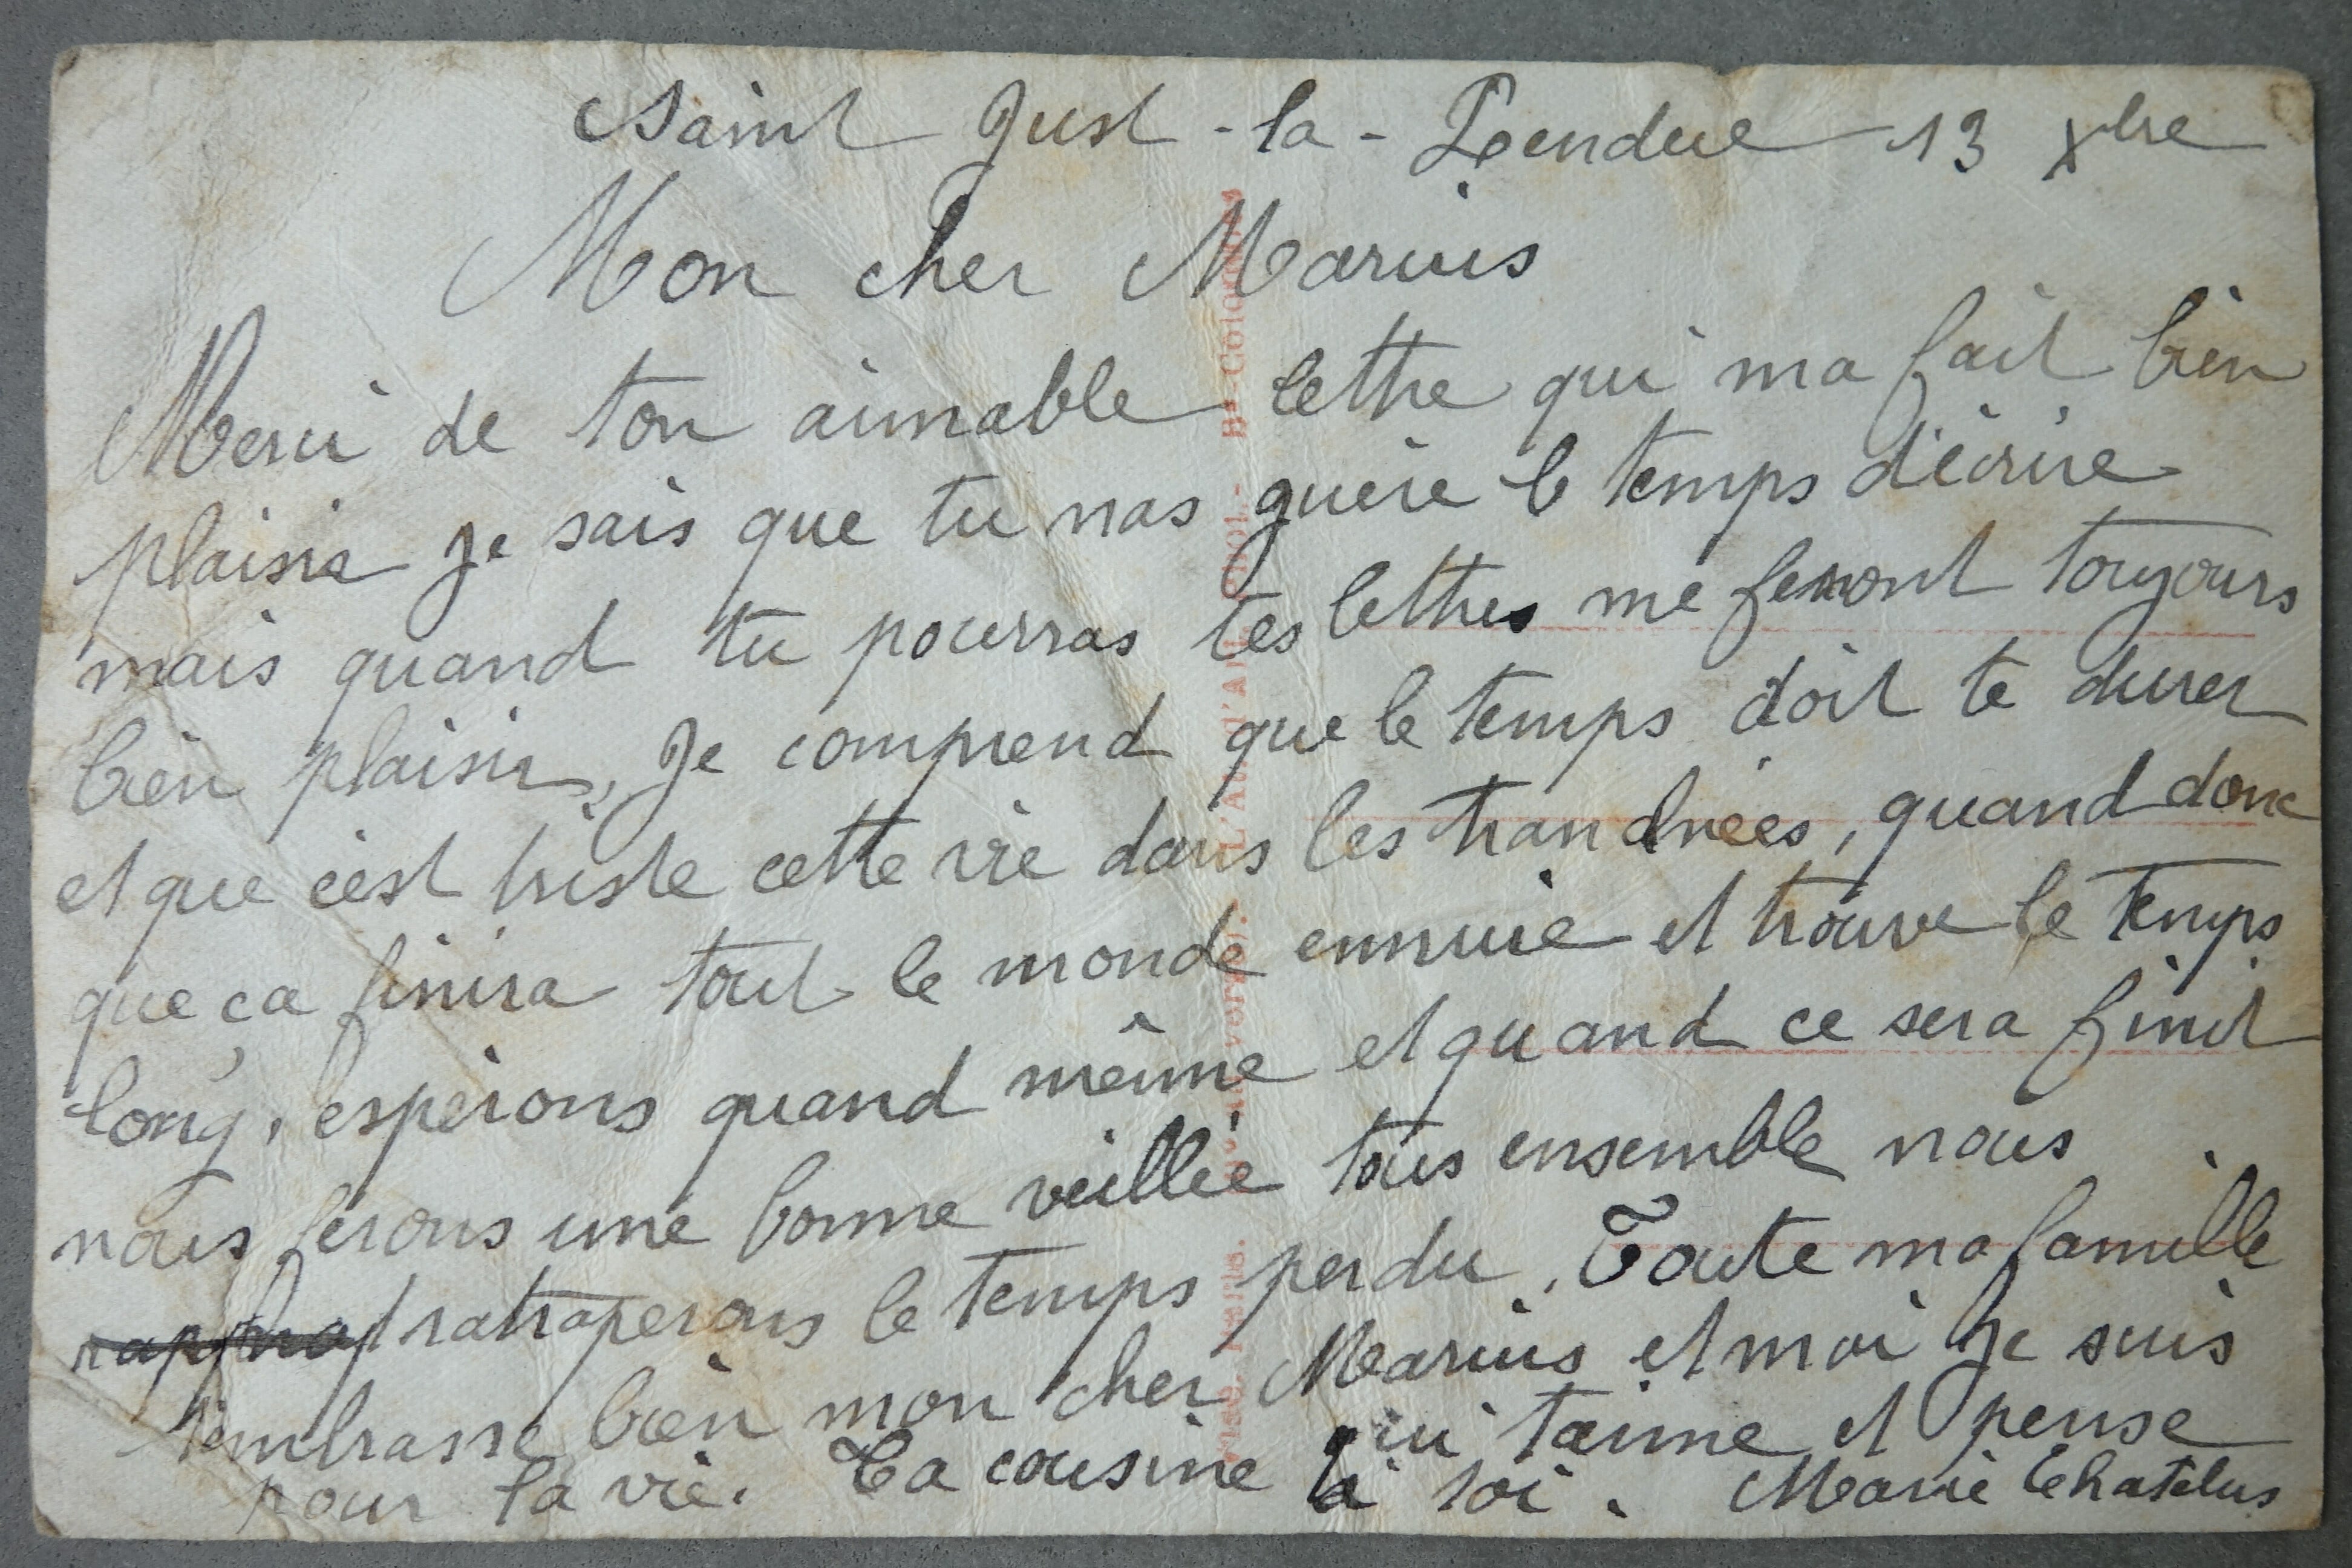 Saint Just-la-Pendue 13 Xbre
Mon cher Marius
Merci de ton aimable lettre qui ma fait bien
plaisir je sais que tu nas guère le temps d'écrire
mais quand tu pourras tes lettres me feront toujours
bien plaisir, Je comprend que le temps doit te durer
et que c'est triste cette vie dans les tranchées, quand donc
que ça finira tout le monde ennuie et trouve le temps
long, espérons quand même et quand ce sera finit
nous ferons une bonne veillée tous ensemble nous
ratraperons le temps perdu. Toute ma famille
t'embrasse bien mon cher Marius et moi je suis
pour la vie. Ta cousine qui t'aime et pense
à toi. Marie Chatelus